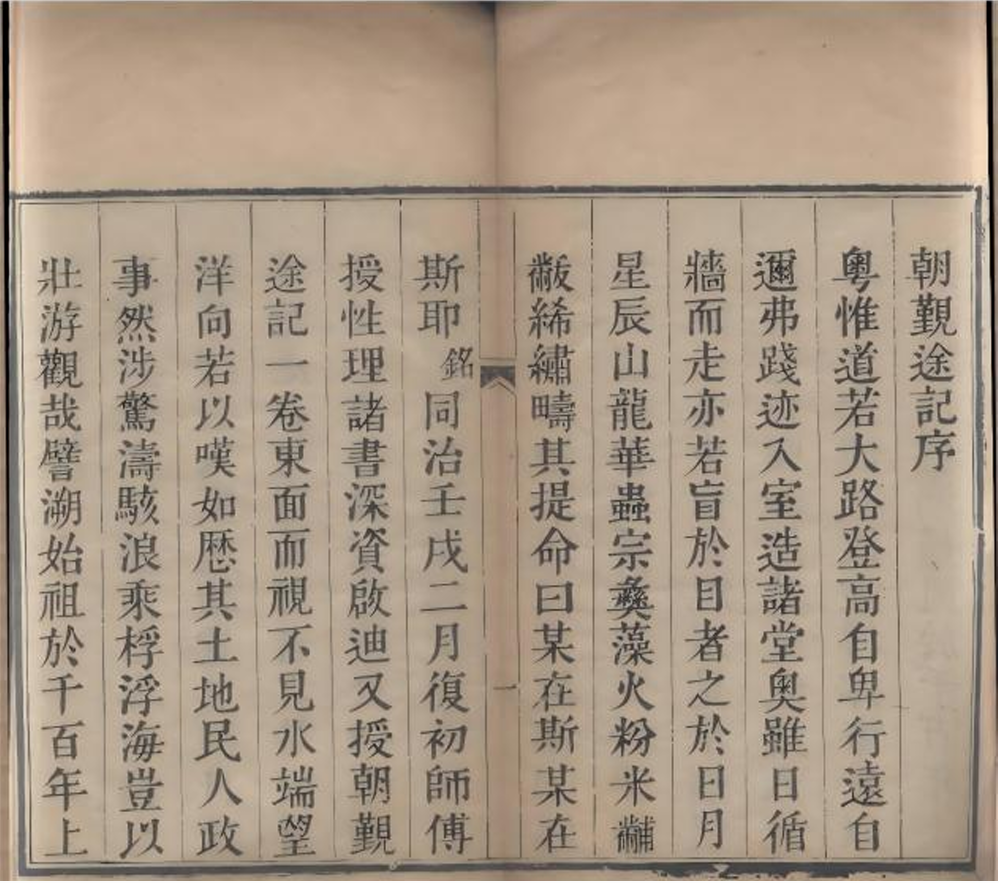 朝覲途記序
粵惟道若大路登高自卑行遠自
邇弗踐迹入室造諸堂奧雖日循
牆而走亦若盲於目者之於日月
星辰山龍華蟲宗彝藻火粉米黼
黻絺繡疇其提命曰某在斯某在
一
斯耶銘同治壬戌二月復初師傅
授性理諸書深資啟迪又授朝覲
途記一卷東面而視不見水端望
洋向若以嘆如歷其土地民人政
事然涉驚濤駭浪乘桴浮海豈以
壯游觀哉譬溯始祖於千百年上